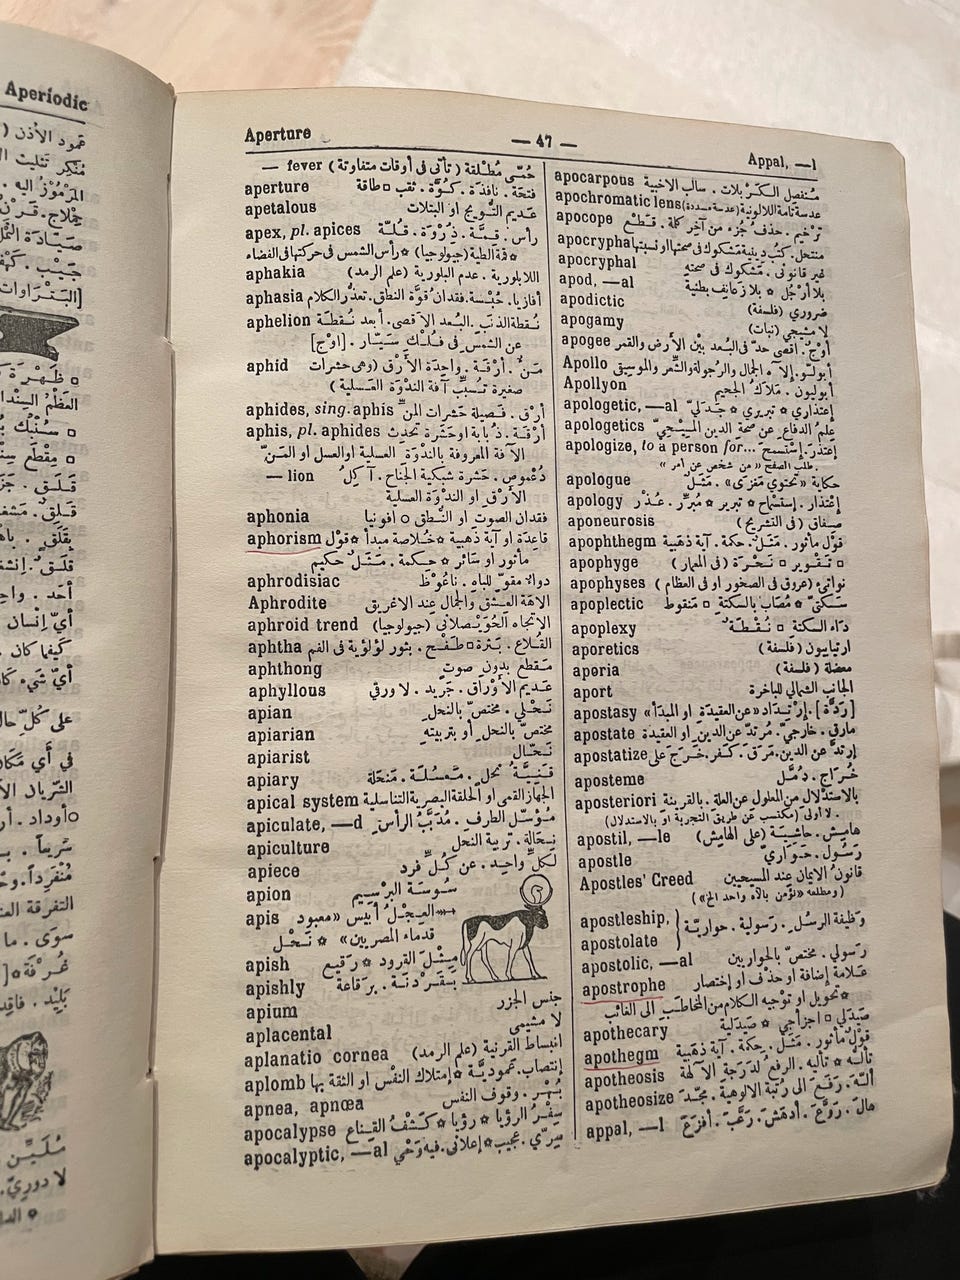 Aperiodic
Aperture — 47 — Appal, —l
— fever حُمّى مُطلقة (تأتى فى أوقات متفاوتة)
aperture فتحة. نافذة. كُوّة. ثقب ▫ طاقة
apetalous عديم التُويج او البتلات
apex, pl. apices رأس. قمّة. ذروة. قُلّة
▫ قمة الطية (جيولوجيا) ☆ رأس الشمس فى حركتها فى الفضاء
aphakia اللابلورية. عدم البلورية (علم الرمد)
aphasia أفازيا. حُبْسة. فقدان قوّة النطق. تعذّر الكلام
aphelion نُقطة الذنَب. البُعد الاقصى. أبعد نُقطة
عن الشمس فى فلك سيّار. [اوج]
aphid مَنّ. أرْقة. واحدة الأرْق (وهى حشرات
صغيرة تسبّب آفة الندْوَة العسلية)
aphides, sing. aphis أرْق. فصيلة حَشرات المنّ
aphis, pl. aphides أرْقة. ذُبابة او حَشرة تحدث
الآفة المعروفة بالندْوَة العسلية او العسل او المنّ
— lion دُعموص. حشرة شبكية الجناح. آكل
الأرْق او الندْوَة العسلية
aphonia فقدان الصوت او النُطق ○ افونيا
aphorism قاعدة او آية ذهبية ☆ خُلاصة مبدأ ☆ قول
مأثور أو سائر ☆ حِكمة. مَثَل حكيم
aphrodisiac دواء مقوّ للباه. ناعُوظ
Aphrodite الاهة العشق والجمال عند الاغريق
aphroid trend الاتجاه الحُوَيْصلانى (جيولوجيا)
aphtha القُلاع. بَثرة ▫ طفح. بثور لؤلؤية فى الفم
aphthong مقطع بدون صوت
aphyllous عديم الأوراق. جَريد. لا ورقى
apian نَحلى. مختصّ بالنحل
apiarian مختصّ بالنحل أو بتربيته
apiarist نحّال
apiary قَنبيّة نحل. مَعسلة. مَنحلة
apical system الجهاز القمى او الحلقة البصرية التناسلية
apiculate, —d مُؤسّل الطرف. مُدبَّب الرأس
apiculture نِحالة. تربية النحل
apiece لكلّ واحد. عن كلّ فرد
apion سُوسَة البرسيم
apis العِجل أبيس «معبود
قدماء المصريين» ☆ نَحل
apish مِثل القرود ☆ رقيع
apishly بقَرْدنة. برَقاعة
apium جنس الجزر
aplacental لا مشيمى
aplanatio cornea انبساط القرنية (علم الرمد)
aplomb إنتصاب. عموديّة ☆ إمتلاك النفْس او الثقة بها
apnea, apnœa بُهْر. وقوف النفَس
apocalypse سِفْرُ الرؤيا ☆ رؤيا ☆ كشْفُ القِناع
apocalyptic, —al سِرّى. عجيب ☆ إعلانى. فيه وَحْى
apocarpous مُنفصل الكربلات. سائب الاخبية
apochromatic lens عدسة تامة اللالونية (عدسة مسددة)
apocope ترخيم. حذف جُزء من آخر كلمة. قَطْع
apocrypha منتحل. كتب دينية مشكوك فى صحتها او نسبتها
apocryphal غير قانونى. مَشكوك فى صحته
apod, —al بلا أرجُل ☆ بلا زعانف بطنية
apodictic ضرورى (فلسفة)
apogamy لا مشيجى (نبات)
apogee أوْج. أقصى حدّ فى البعد بيْن الأرض والقمر
Apollo أبولّو. إلاه الجمال والرجولة والشعر والموسيقى
Apollyon أبوليون. مَلاك الجحيم
apologetic, —al إعتذارى ☆ تبريرى ☆ جَدَلىّ
apologetics علمُ الدفاع عن صحة الدين المسيحىّ
apologize, to a person for... إعتذر. إستسمح
. طلب الصفح «من شخص عن أمر»
apologue حكاية «تحتوى مَغزى». مَثَل
apology إعْتذار. إستسماح ☆ تبرير ☆ مُبرّر. عُذر
aponeurosis صِفاق (فى التشريح)
apophthegm قول مأثور. مَثَل. حكمة. آية ذهبية
apophyge ▫ تقوير ▫ نحْرة (فى المعمار)
apophyses نواتئ (عروق فى الصخور او فى العظام)
apoplectic سَكتىّ ☆ مُصاب بالسكتة ▫ مَنقوط
apoplexy داء السكتة ▫ نُقْطة
aporetics ارتيابيون (فلسفة)
aporia معضلة (فلسفة)
aport الجانب الشمالى للباخرة
apostasy [رَدّة]. إرتداد «عن العقيدة او المبدأ»
apostate مارق. خارجىّ. مُرتدّ عن الدين أو العقيدة
apostatize إرتدّ عن الدين. مَرَق. كفر. خرَج على
aposteme خُراج. دُمَّل
aposteriori بالاستدلال من المعلول عن العلة. بالقرينة
. لا أولى (مكتسب عن طريق التجربة او بالاستدلال)
apostil, —le هامش. حاشيَة (على الهامش)
apostle رسول. حَوارىّ
Apostles' Creed قانون الايمان عند المسيحيين
(ومطلعه «نؤمن باله واحد الخ»)
apostleship, } وَظيفة الرسُل. رَسولية. حواريّة
apostolate
apostolic, —al رَسولى. مختصّ بالحواريين
apostrophe عَلامة إضافة أو حذف أو إختصار
☆ تحويل او توجيه الكلام من المخاطب الى الغائب
apothecary صَيدلى ▫ اجزاجى ☆ صَيدَلية
apothegm قَول مأثور. مَثَل. حِكمة. آية ذَهبية
apotheosis تأليه ☆ تأليه. الرفع لدَرجة الآلهة
apotheosize ألّه. رَفَع الى رُتبة الالوهية. مجّد
appal, —l هالَ. رَوّع. أدهَش. رَعَّب. أفزَعَ